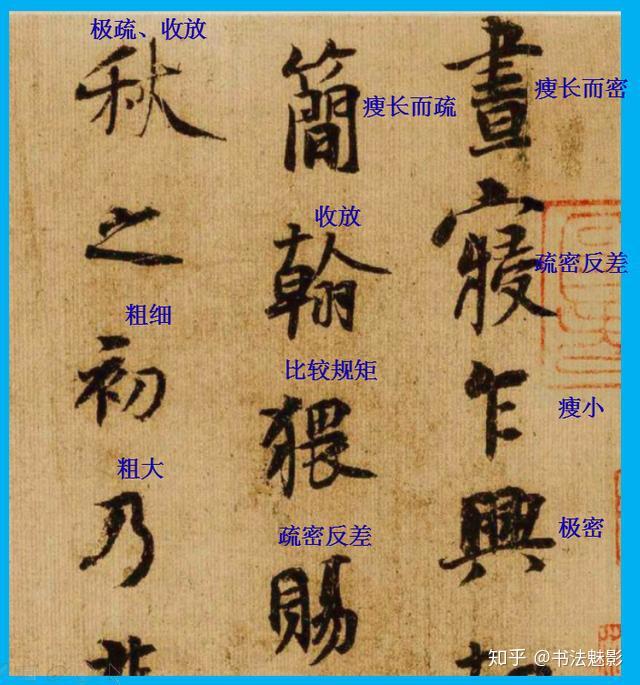 晝寢乍興
簡翰猥賜
秋之初乃
瘦长而密
疏密反差
瘦小
极密
瘦长而疏
收放
比较规矩
疏密反差
极疏、收放
粗细
粗大
知乎 @书法魅影